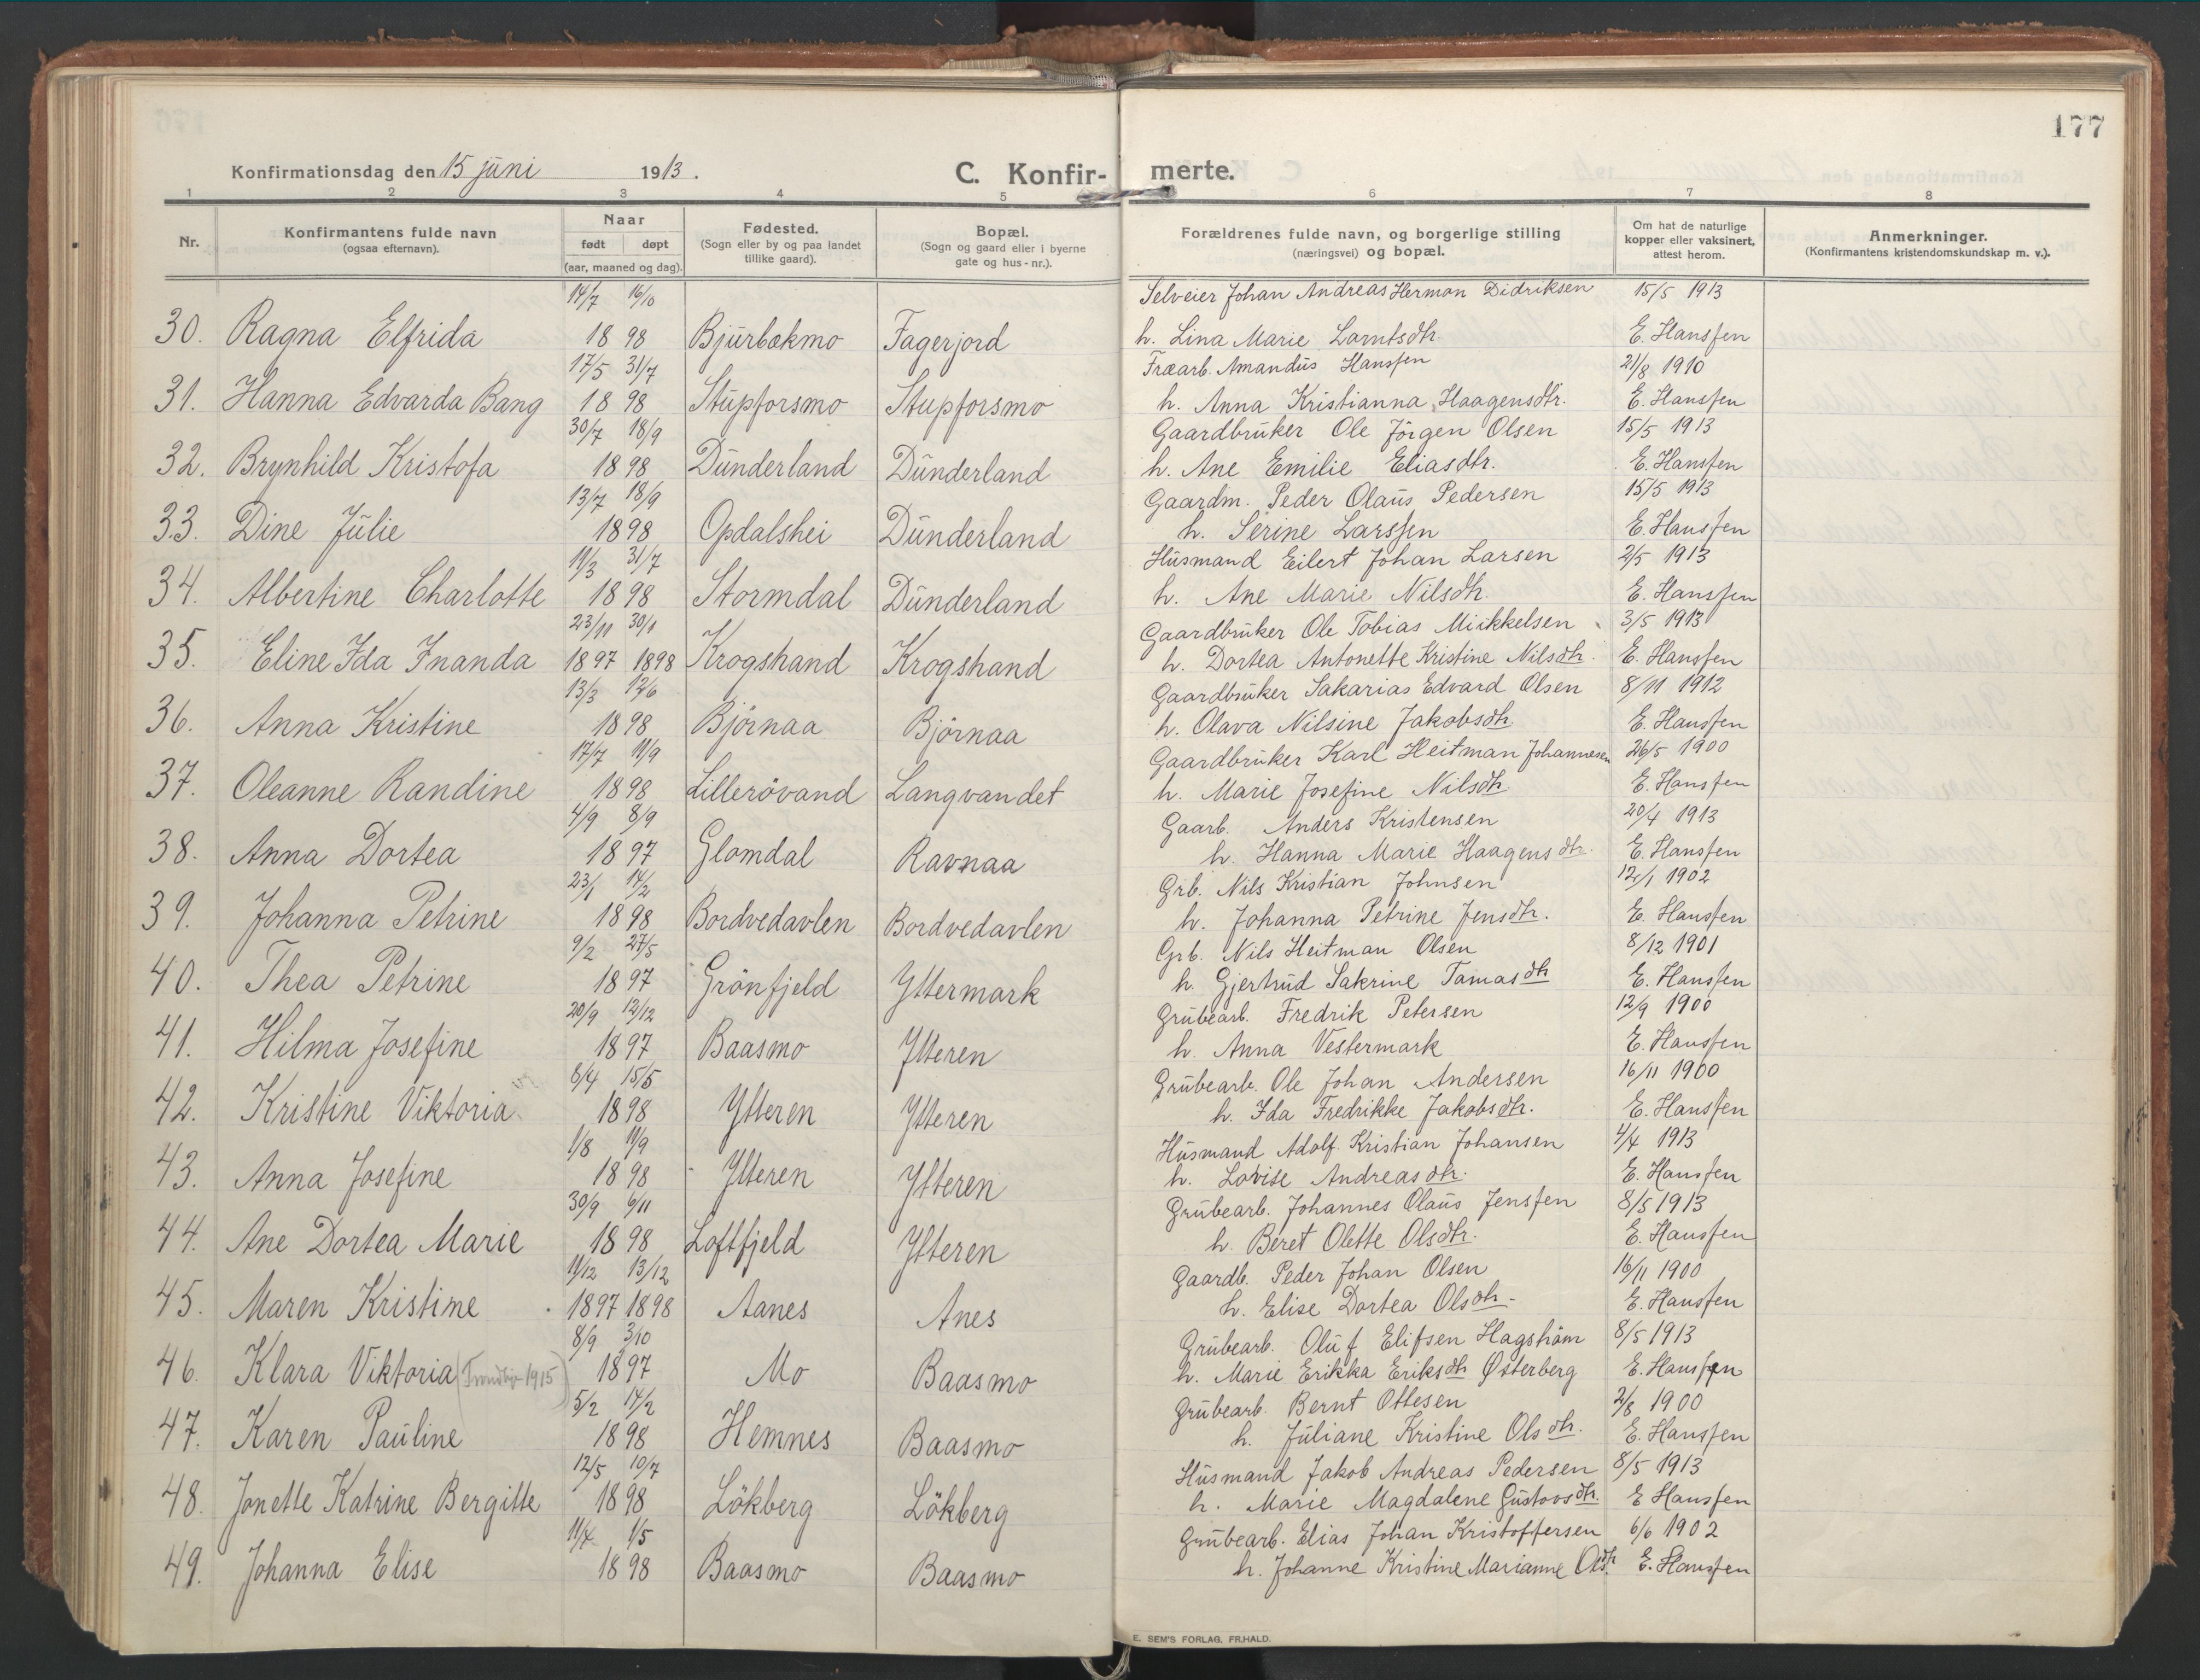 177
Konfirmationsdag den 15 juni 1913.
C. Konfir- merte.
1 2 3 4 5 6 7 8
Nr.
Konfirmantens fulde navn
(ogsaa efternavn).
Naar
født døpt
(aar, maaned og dag).
Fødested.
(Sogn eller by og paa landet
tillike gaard).
Bopæl.
(Sogn og gaard eller i byerne
gate og hus-nr.).
Forældrenes fulde navn, og borgerlige stilling
(næringsvei) og bopæl.
Om hat de naturlige
kopper eller vaksinert,
attest herom.
Anmerkninger.
(Konfirmantens kristendomskundskap m. v.).
14/7 16/10 Selveier Johan Andreas Herman Didriksen 15/5 1913
30. Ragna Elfrida 1898 Bjurbækmo Fagerjord h. Lina Marie Larntsdtr. E. Hanssen
17/5 31/7 Fræarb. Amandus Hanssen 21/8 1910
31. Hanna Edvarda Bang 1898 Stupforsmo Stupforsmo h. Anna Kristianna Haagensdtr. E. Hanssen
30/7 18/9 Gaardbruker Ole Jörgen Olsen 15/5 1913
32. Brynhild Kristofa 1898 Dunderland Dunderland h. Ane Emilie Eliasdtr. E. Hanssen
13/7 18/9 Gaardm. Peder Olaus Pedersen 15/5 1913
33. Dine Julie 1898 Opdalshei Dunderland h. Serine Larssen E. Hanssen
11/3 31/7 Husmand Eilert Johan Larsen 2/5 1913
34. Albertine Charlotte 1898 Stormdal Dunderland h. Ane Marie Nilsdtr. E. Hanssen
23/11 30/1 Gaardbruker Ole Tobias Mikkelsen 3/5 1913
35. Eline Ida Inanda 1897 1898 Krogstrand Krogstrand h. Dortea Antonette Kristine Nilsdtr. E. Hanssen
13/3 12/6 Gaardbruker Sakarias Edvard Olsen 8/11 1912
36. Anna Kristine 1898 Björnaa Björnaa h. Olava Nilsine Jakobsdtr. E. Hanssen
17/7 11/9 Gaardbruker Karl Heitman Johannesen 26/5 1900
37. Oleanne Randine 1898 Lillerövand Langvandet h. Marie Josefine Nilsdtr. E. Hanssen
4/9 8/9 Gaarb. Anders Kristensen 20/4 1913
38. Anna Dortea 1897 Glomdal Ravnaa h. Hanna Marie Haagensdtr. E. Hanssen
23/1 14/2 Grb. Nils Kristian Johnsen 12/1 1902
39. Johanna Petrine 1898 Bordvedavlen Bordvedavlen h. Johanna Petrine Jensdtr. E. Hanssen
9/2 27/5 Grb. Nils Heitman Olsen 8/12 1901
40. Thea Petrine 1897 Grönfjeld Yttermark h. Gjertrud Sakrine Tamasdtr E. Hanssen
20/9 12/12 Grubearb. Fredrik Petersen 12/9 1900
41. Hilma Josefine 1897 Baasmo Ytteren h. Anna Vestermark E. Hanssen
8/4 15/5 Grubearb. Ole Johan Andersen 16/11 1900
42. Kristine Viktoria 1898 Ytteren Ytteren h. Ida Fredrikke Jakobsdtr. E. Hanssen
1/8 11/9 Husmand Adolf Kristian Johansen 4/4 1913
43. Anna Josefine 1898 Ytteren Ytteren h. Lovise Andreasdtr. E. Hanssen
30/9 6/11 Grubearb. Johannes Olaus Jenssen 8/5 1913
44. Ane Dortea Marie 1898 Loftfjeld Ytteren h. Beret Olette Olsdtr. E. Hanssen
11/12 13/12 Gaardb. Peder Johan Olsen 16/11 1900
45. Maren Kristine 1897 1898 Aanes Anes h. Elise Dortea Olsdtr. E. Hanssen
8/9 3/10 Grubearb. Oluf Elifsen Hagström 8/5 1913
46. Klara Viktoria (1915) 1897 Mo Baasmo h. Marie Erikka Eriksdtr Østerberg E. Hanssen
5/2 14/2 Grubearb. Bernt Ottesen 2/8 1900
47. Karen Pauline 1898 Hemnes Baasmo h. Juliane Kristine Olsdtr. E. Hanssen
12/5 10/7 Husmand Jakob Andreas Pedersen 8/5 1913
48. Jonette Katrine Bergitte 1898 Lökberg Lökberg h. Marie Magdalene Gustavsdtr. E Hanssen
11/4 1/5 Grubearb. Elias Johan Kristoffersen 6/6 1902
49. Johanna Elise 1898 Baasmo Baasmo h. Johanne Kristine Marianne Olsdtr. E. Hanssen
E. SEM'S FORLAG, FR.HALD.